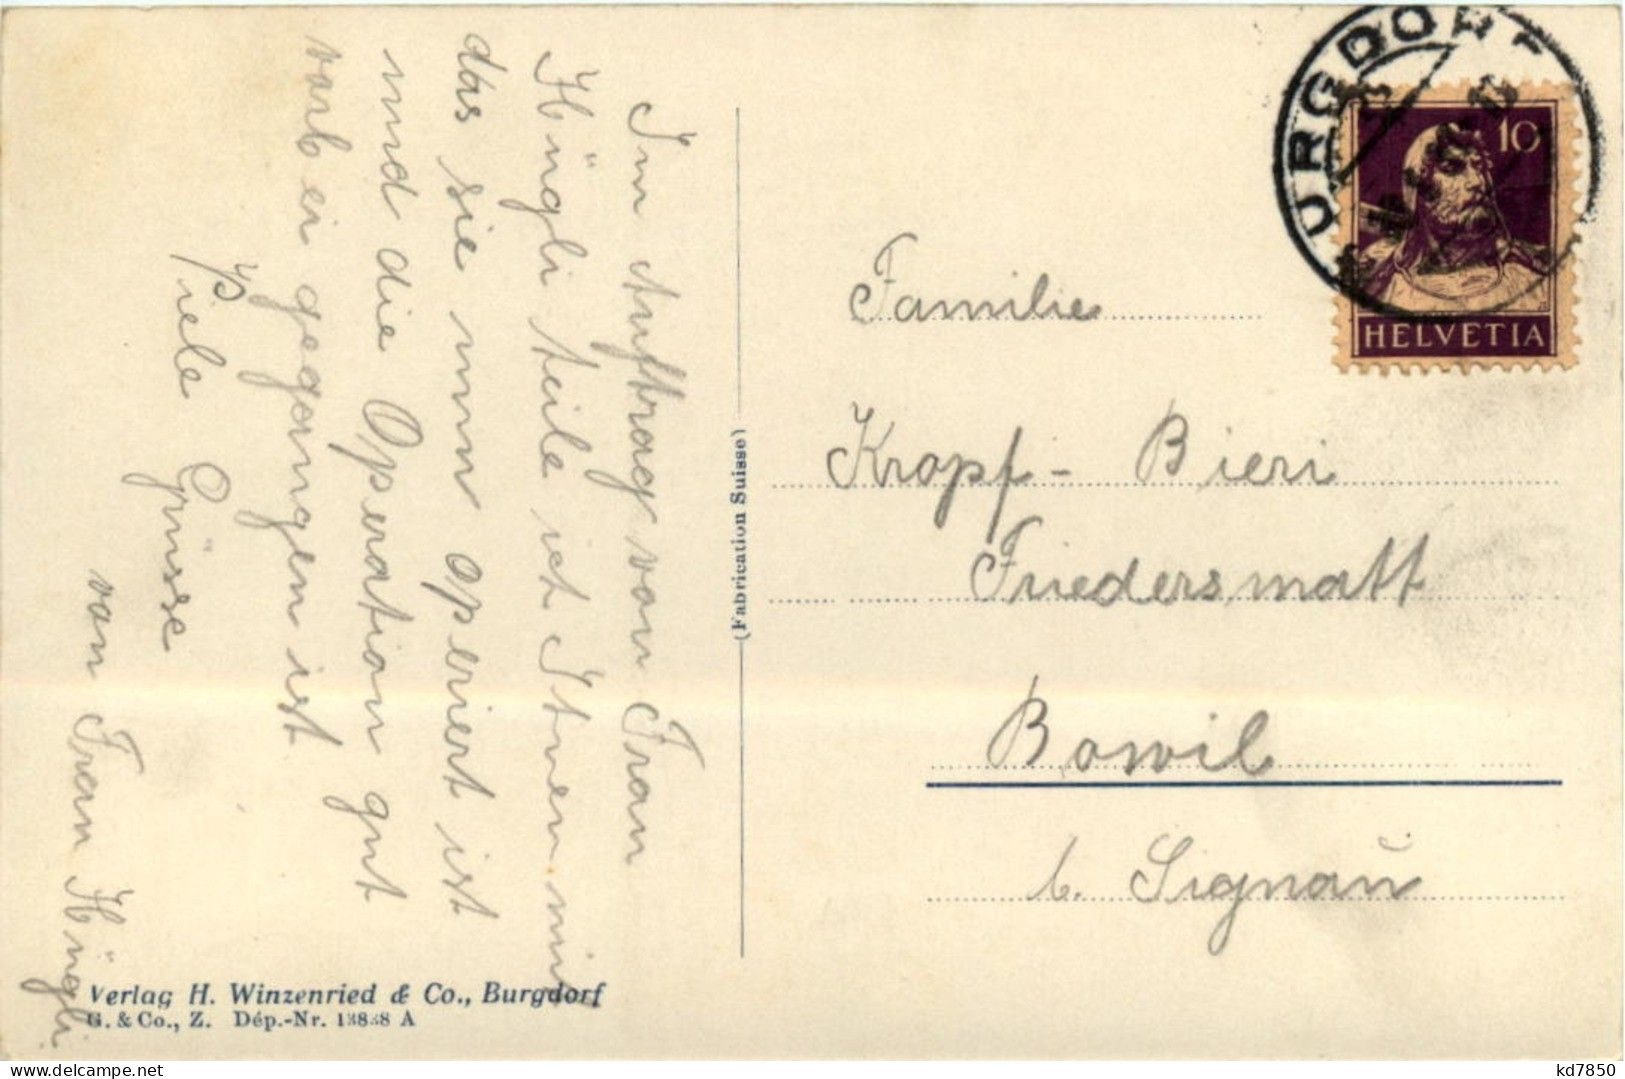 Im Auftrag von Frau
Hüngli teile ich Ihnen mit
das sie nun operiert ist
und die Operation gut
vorbei gegangen ist
Viele Grüsse
von Frau Hügli
(Fabrication Suisse)
URGDORF
10
HELVETIA
Familie
Kropf - Bieri
Friedersmatt
Bowil
b. Signau
Verlag H. Winzenried & Co., Burgdorf
G. & Co., Z. Dép.-Nr. 13838 A
delcampe.net
kd7850